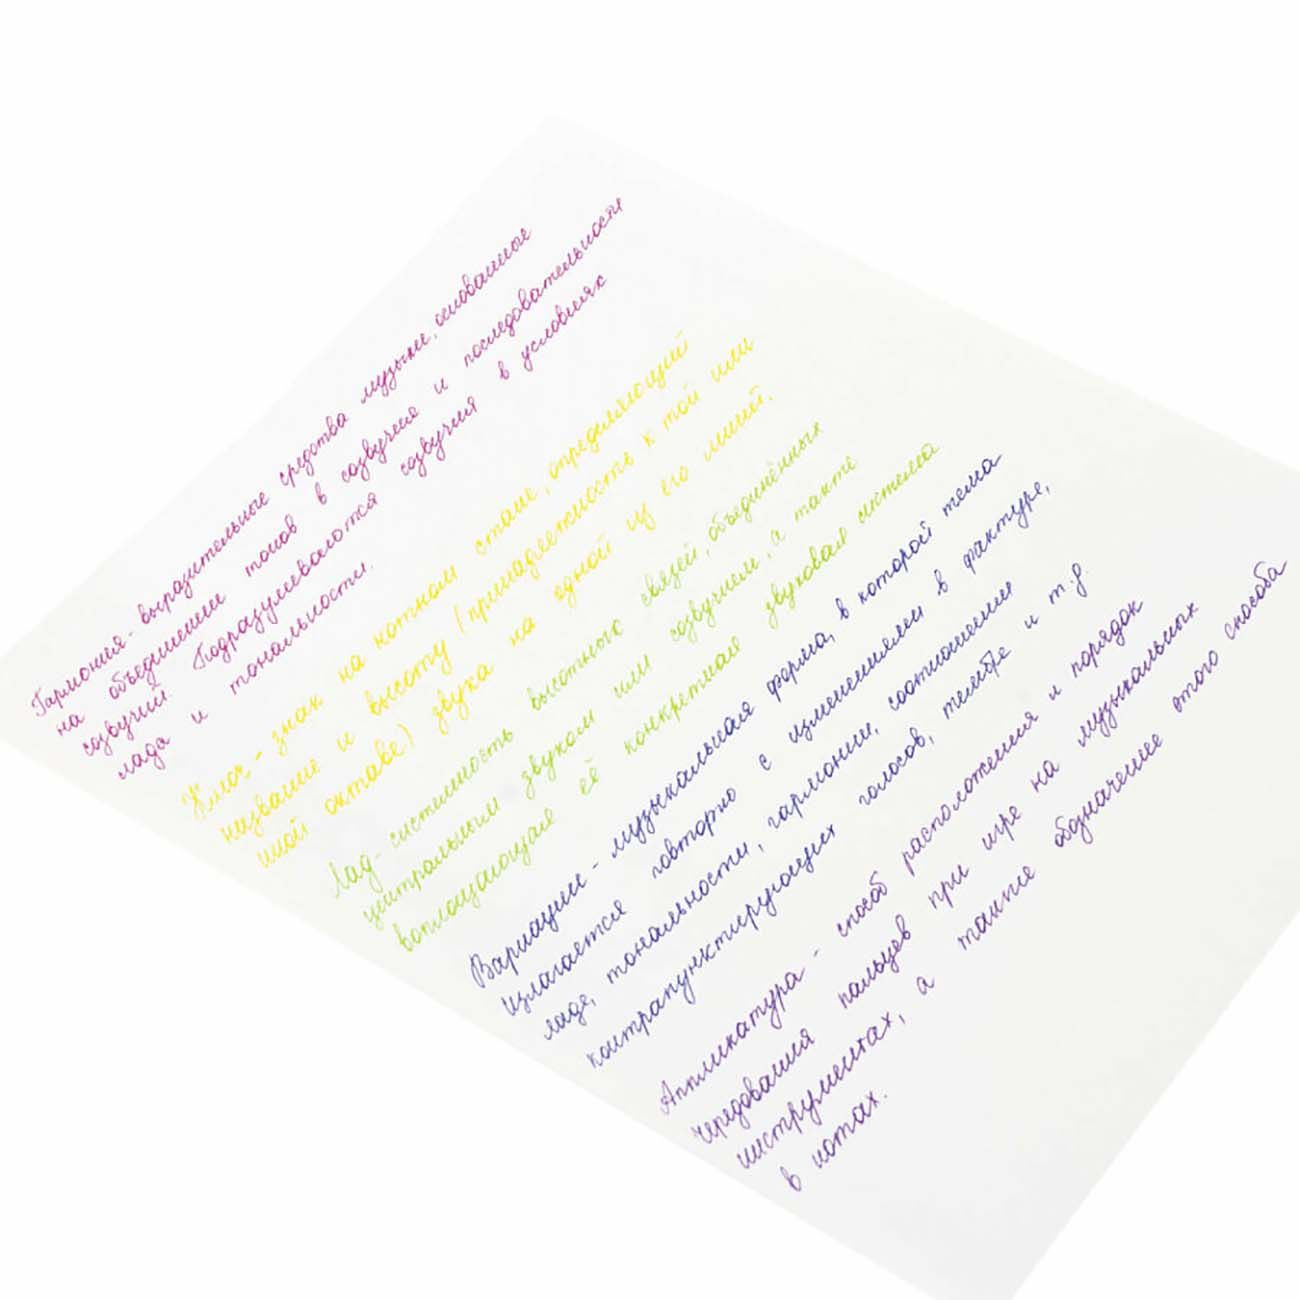 Гармония - выразительные средства музыки, основанные
на объединении тонов в созвучия и последовательности
созвучий. Подразумеваются созвучия в условиях
лада и тональности.
Ключ - знак на нотном стане, определяющий
название и высоту (принадлежность к той или
иной октаве) звука на одной из его линий.
Лад - системность высотных связей, объединённых
центральным звуком или созвучием, а также
воплощающая её конкретная звуковая система
Вариации - музыкальная форма, в которой тема
излагается повторно с изменениями в фактуре,
ладе, тональности, гармонии, соотношении
контрапунктирующих голосов, тембре и т.д.
Аппликатура - способ расположения и порядок
чередования пальцев при игре на музыкальных
инструментах, а также обозначение этого способа
в нотах.